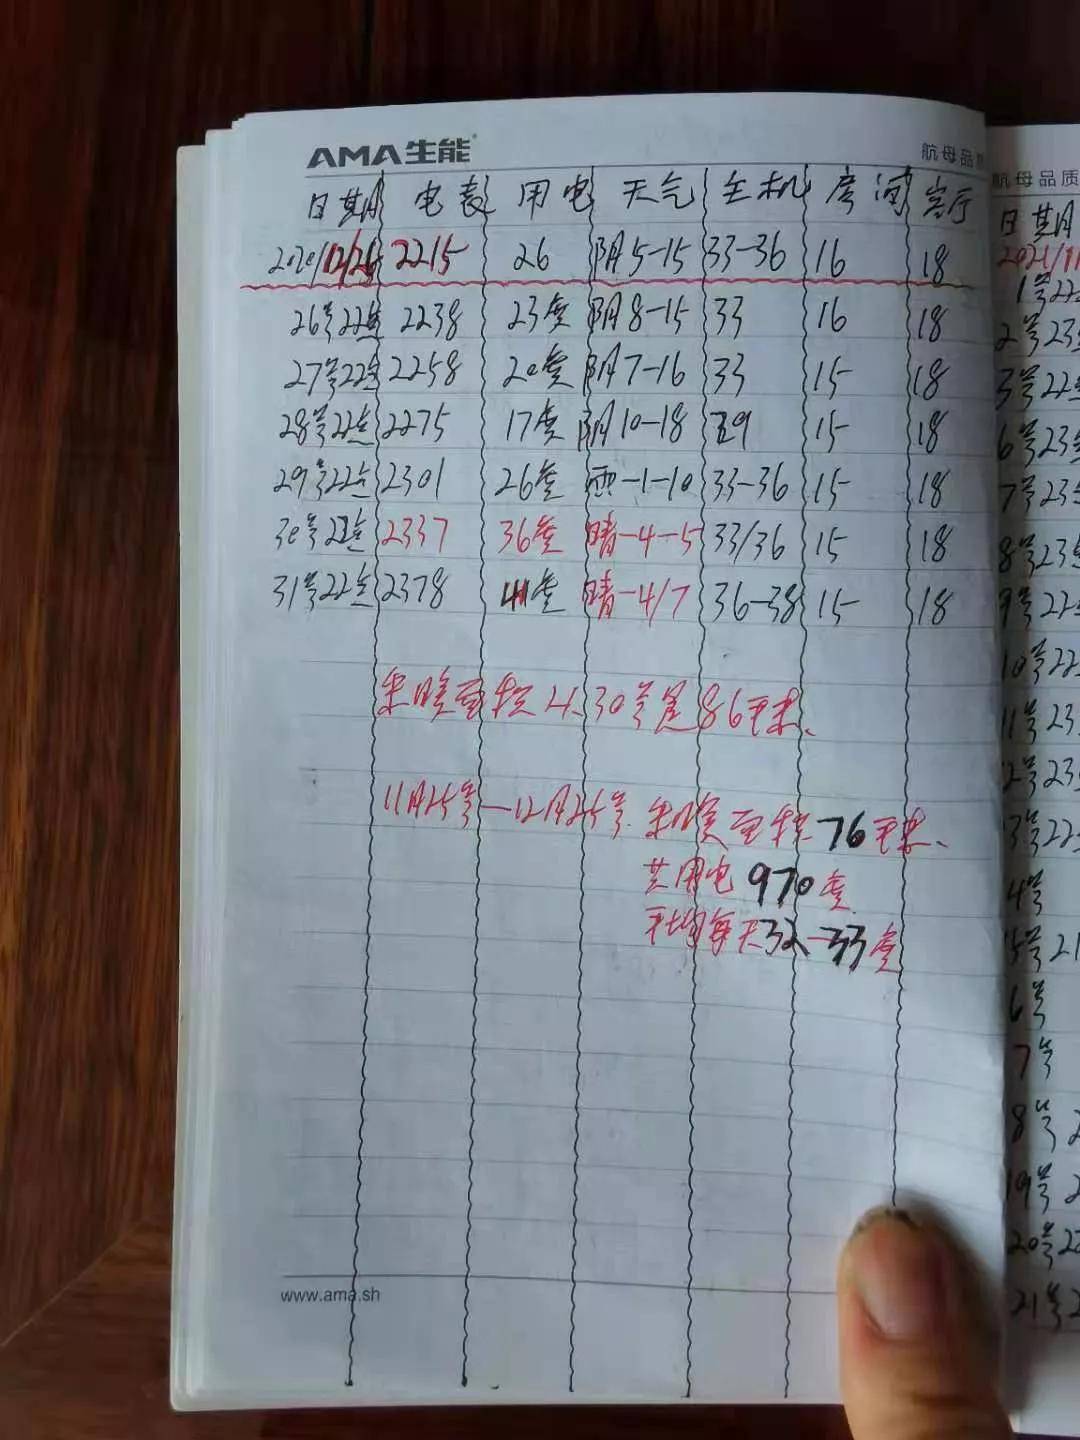 AMA生能
航母品
航母品质
日期 电表 用电 天气 主机 房间 客厅
2020/12/25 2215 26 阴5-15 33-36 16 18
26号22点 2238 23度 阴8-15 33 16 18
27号22点 2258 20度 阴7-16 33 15 18
28号22点 2275 17度 阴10-18 29 15 18
29号22点 2301 26度 雨-1-10 33-36 15 18
30号22点 2337 36度 晴-4-5 33/36 15 18
31号22点 2378 41度 晴-4/7 36-38 15 18
采暖面积 4.30号是86平米、
11月25号—12月25号 采暖面积76平米、
共用电970度
平均每天32-33度
www.ama.sh
日期
2021/1
1号22
2号23
3号22
6号23
7号23
8号23
9号22
10号22
11号23
12号23
13号22
14号
15号21
16号
17号
18号
19号
20号22
21号2